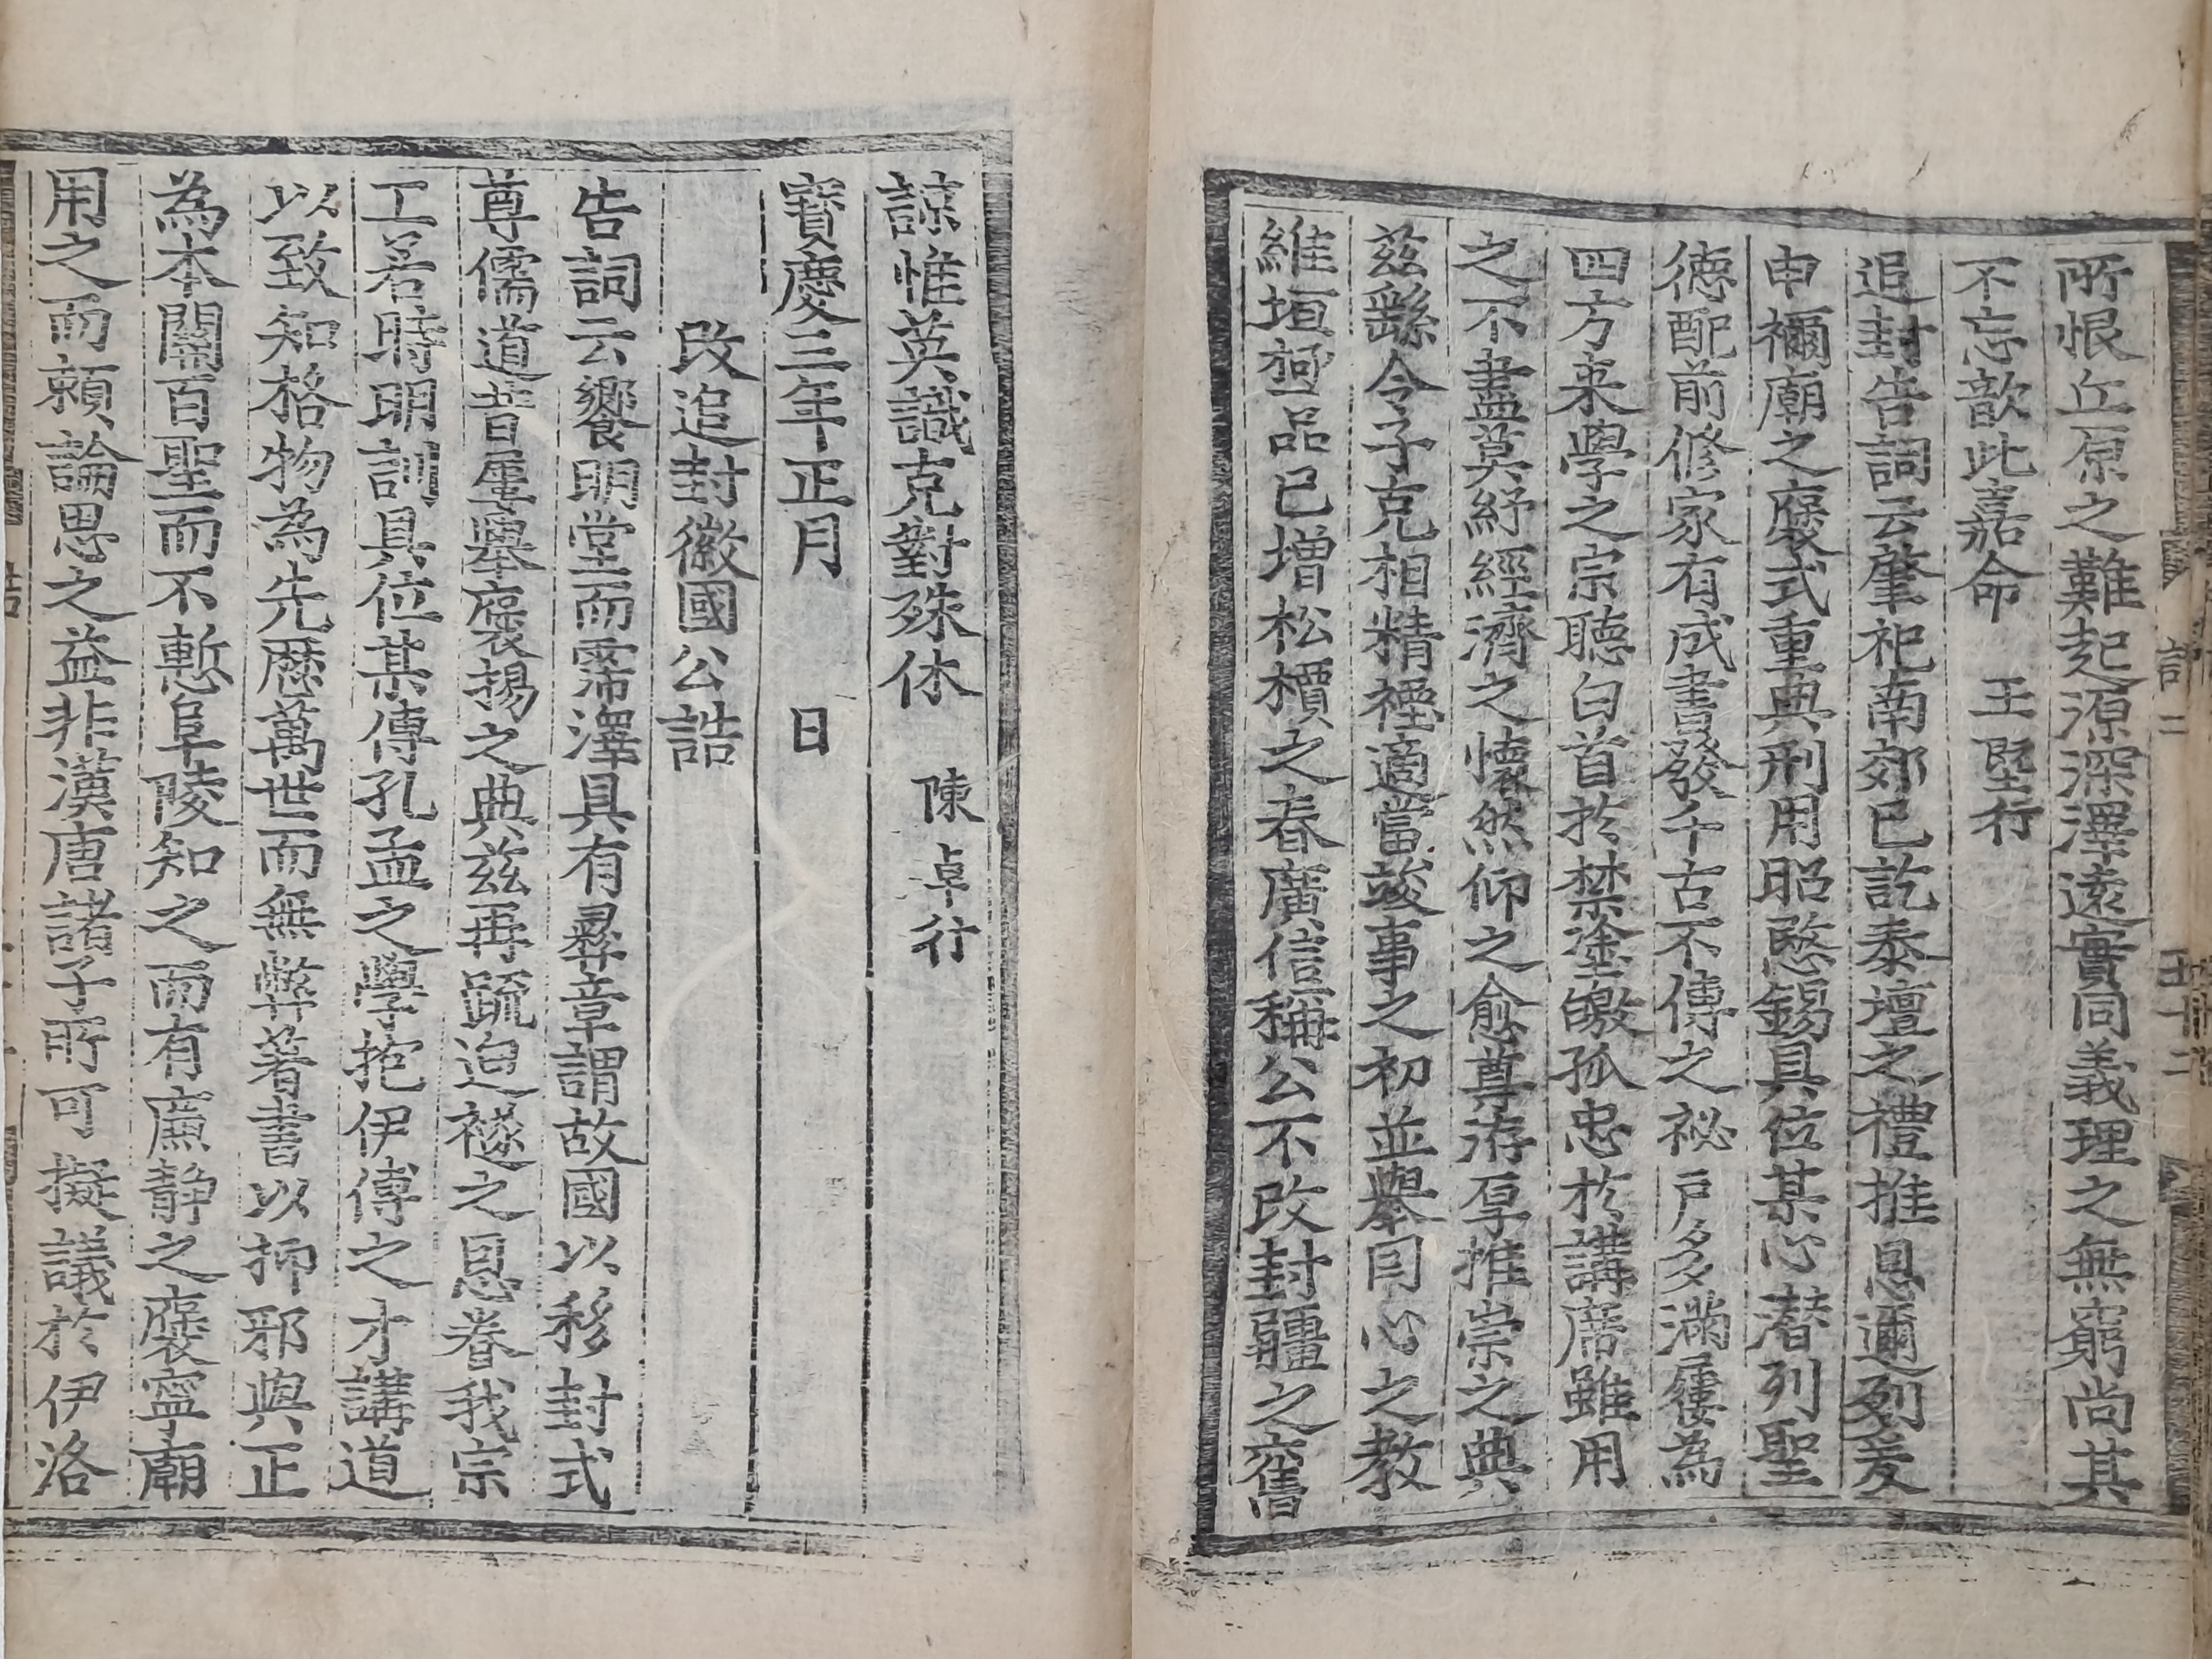 所恨丘原之難起源深澤遠實同義理之無窮尚其
不忘歆此嘉命 王塈行
追封告詞云肇祀南郊已訖泰壇之禮推恩邇列爰
申禰廟之褒式重典刑用昭愍錫具位某心潜列聖
德配前修家有成書發千古不傳之祕戶多滿屨為
四方来學之宗聽白首於禁塗皦孤忠於講席雖用
之不盡莫紓經濟之懷然仰之愈尊游厚推崇之典
茲繇令子克相精禋適當竣事之初並舉同心之教
維垣 品已增松檟之春廣信稱公不改封疆之舊
諒惟英識克對殊休 陳卓行
寶慶三年正月 日
改追封徽國公誥
告詞云饗明堂而霈澤具有彞章謂故國以移封式
尊儒道昔屢舉褒揚之典茲再疏追禭之恩眷我宗
工若時明訓具位某傳孔孟之學抱伊傅之才講道
以致知格物為先歷萬世而無弊著書以抑邪與正
為本關百聖而不慙阜陵知之而有廉靜之褒寧廟
用之而賴論思之益非漢唐諸子所可擬議於伊洛